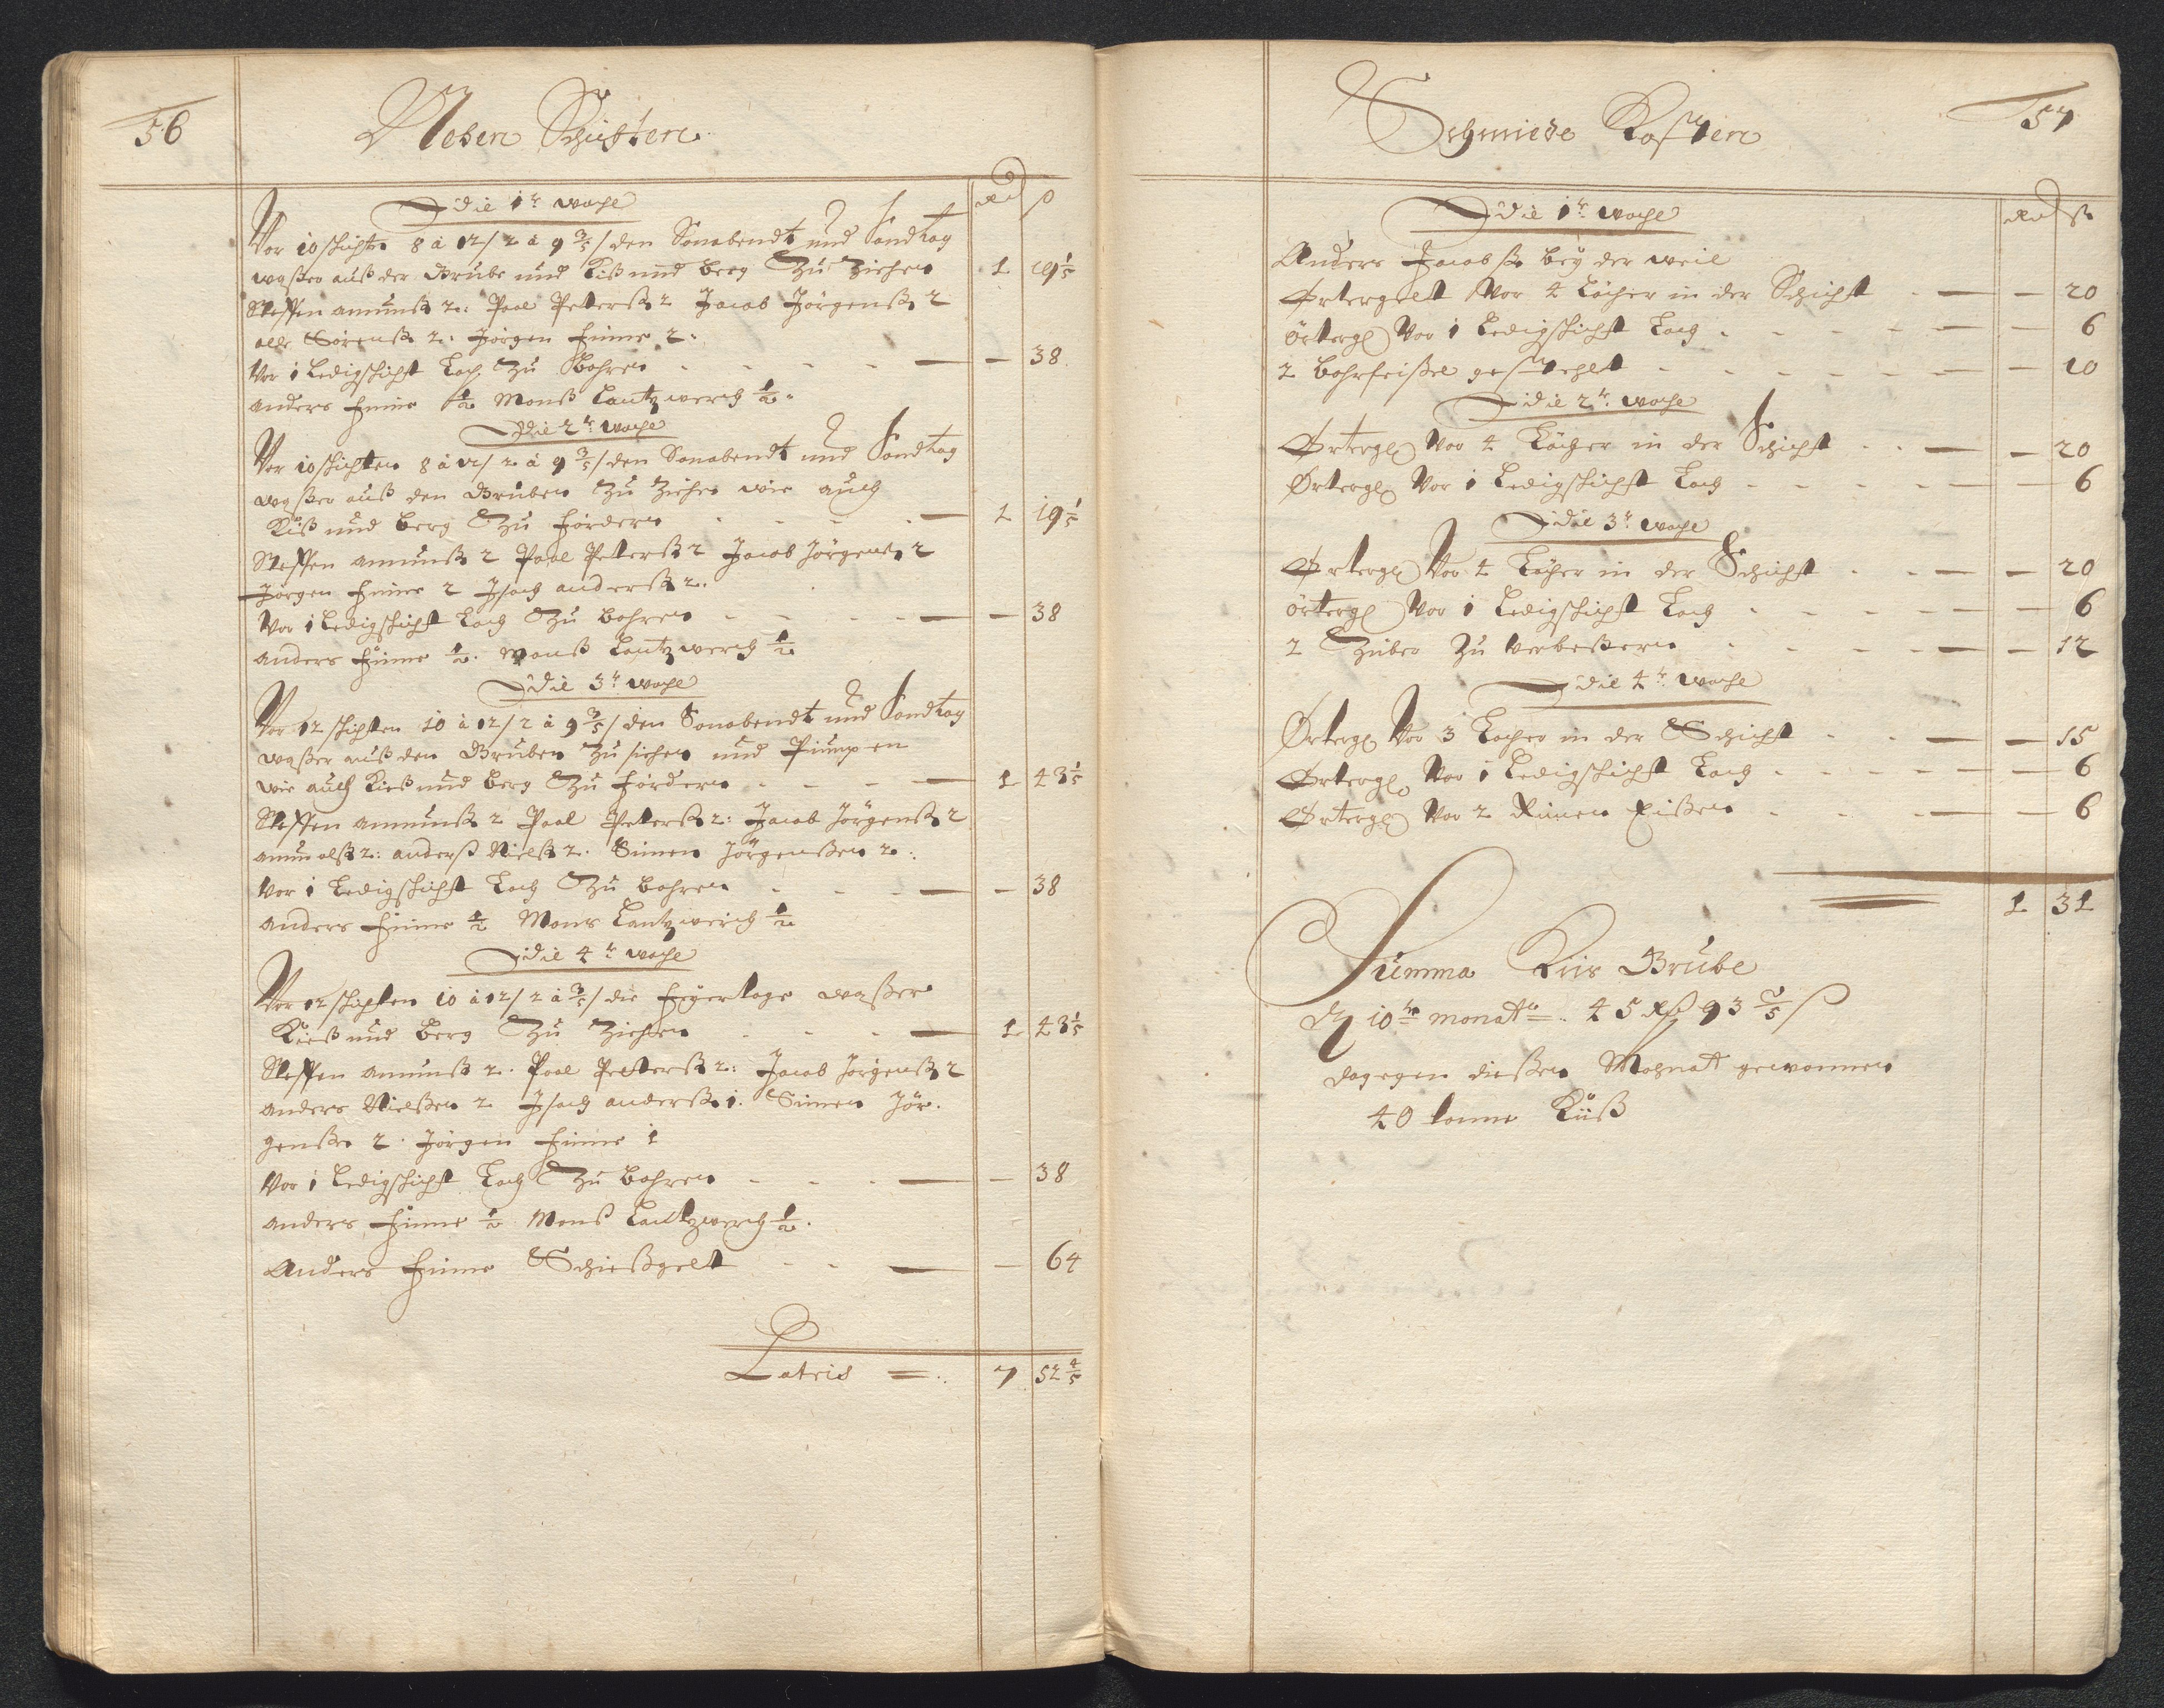 56
Neben Schichten
Rd ß
Die 1te woche
Vor 10 schichten 8 à 12/ 2 à 9 3/5 / den Sonabendt und Sondtag
waßer auß der Grube und Kiß und berg Zu Ziehen - 1 19 1/5
Steffen amunß 2: Poel Peterß 2 Jacob Jörgenß 2
olle Sörenß 2: Jörgen Finne 2:
Vor 1 Ledigschicht Loch Zu Bohren - - - - 38
anders Finne 1/2 Monß Lantzwerch 1/2.
Die 2te woche
Vor 10 schichten 8 à 12/ 2 à 9 3/5 / den Sonabendt und Sondtag
waßer auß den Gruben Zu Ziehen wie auch
Kiß und berg Zu fördern - - - 1 19 1/5
Steffen amunß 2 Poel Peterß 2 Jacob Jörgenß 2
Jörgen Finne 2 Isach anderß 2.
Vor 1 Ledigschicht Loch Zu bohren - - - - 38
anders Finne 1/2. Monß Lantzwerch 1/2
Die 3te woche
Vor 12 schichten 10 à 12/ 2 à 9 3/5 / den Sonabendt und Sondtag
waßer auß den Gruben Zu ziehen und Pumpen
wie auch Kieß und berg Zu fördern - - - 1 43 1/5
Steffen amunß 2 Poel Peterß 2: Jacob Jörgenß 2
amun olß 2: anderß Nielß 2. Simen Jörgenßen 2:
Vor 1 Ledigschicht Loch Zu bohren - - - - 38
anders Finne 1/2 Mons Lantzwerich 1/2
Die 4te woche
Vor 12 schichten 10 à 12/ 2 à 3/5 / die Feyertage waßer
Kieß und berg Zu Ziehen - - - 1 43 1/5
Steffen amunß 2. Poel Petterß 2: Jacob Jörgenß 2
anders Nielßen 2 Isach anderß 1. Simen Jör.
genßen 2. Jörgen Finne 1
Vor 1 Ledigschicht Loch Zu bohren - - - - 38
anders Finne 1/2 Monß Lantzwerch 1/2.
Anders Finne Schießgelt - - - - 64
Latris =. 7 52 4/5
Schmiede Kosten
57
Rd ß
Die 1te woche
Anders Jacobß bey der weil
Örtergelt Vor 4 Löcher in der Schicht - - - 20
örtergl Vor 1 Ledigschicht Loch - - - - 6
2 bohrfeißel gestehlt - - - - 10
Die 2te woche
Örtergl Vor 4 Löcher in der Schicht - - - 20
Örtergl Vor 1 Ledigschicht Loch - - - - 6
Die 3te woche
Örtergl Vor 4 Löcher in der Schicht - - - 20
örtergl Vor 1 Ledigschicht Loch - - - - 6
2 Züber Zu Verbeßern - - - - 12
Die 4te woche
Örtergl Vor 3 Löcher in der Schicht - - - 15
Örtergl Vor 1 Ledigschicht Loch - - - - 6
Örtergl Vor 2 Rimen Eißen - - - - 6
1 31
Summa Kris Grube
10te monatt =. 45 Rß 93 2/5 ß
dagegen dießen Mohnatt gewonnen
40 tonne Kiiß